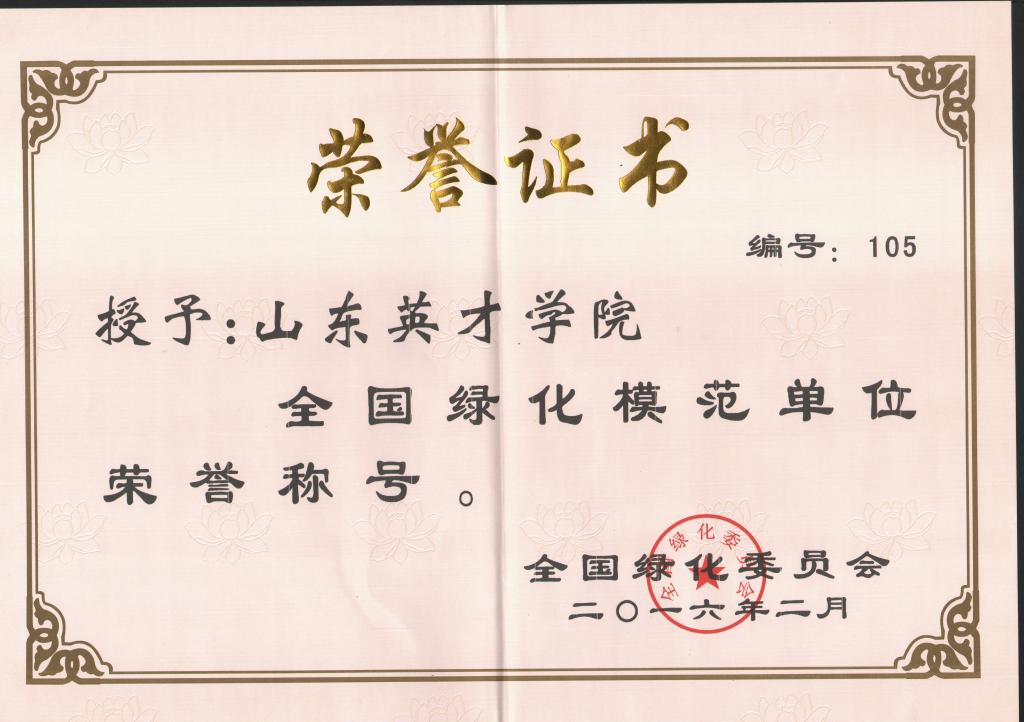 荣誉证书
编号：105
授予：山东英才学院
全国绿化模范单位
荣誉称号。
全国绿化委员会
二〇一六年二月
全国绿化委员会